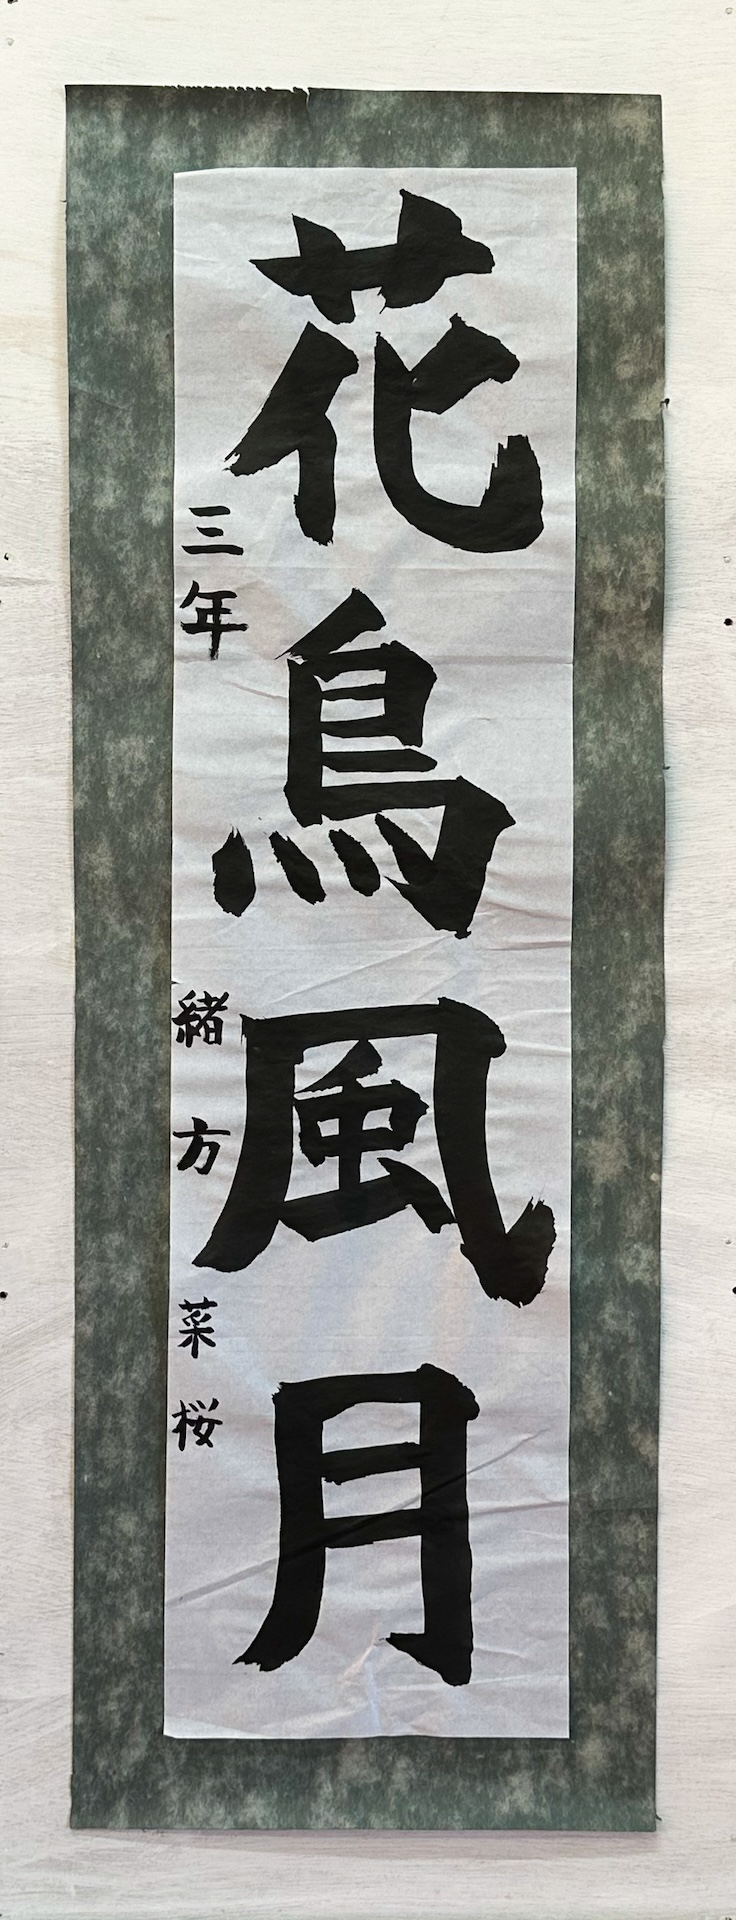 花鳥風月
三年 緒方菜桜